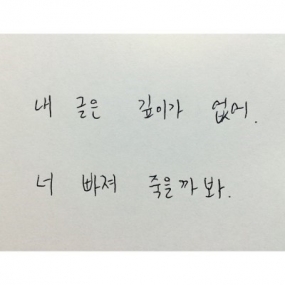 내 글은 깊이가 없어.
너 빠져 죽을까 봐.